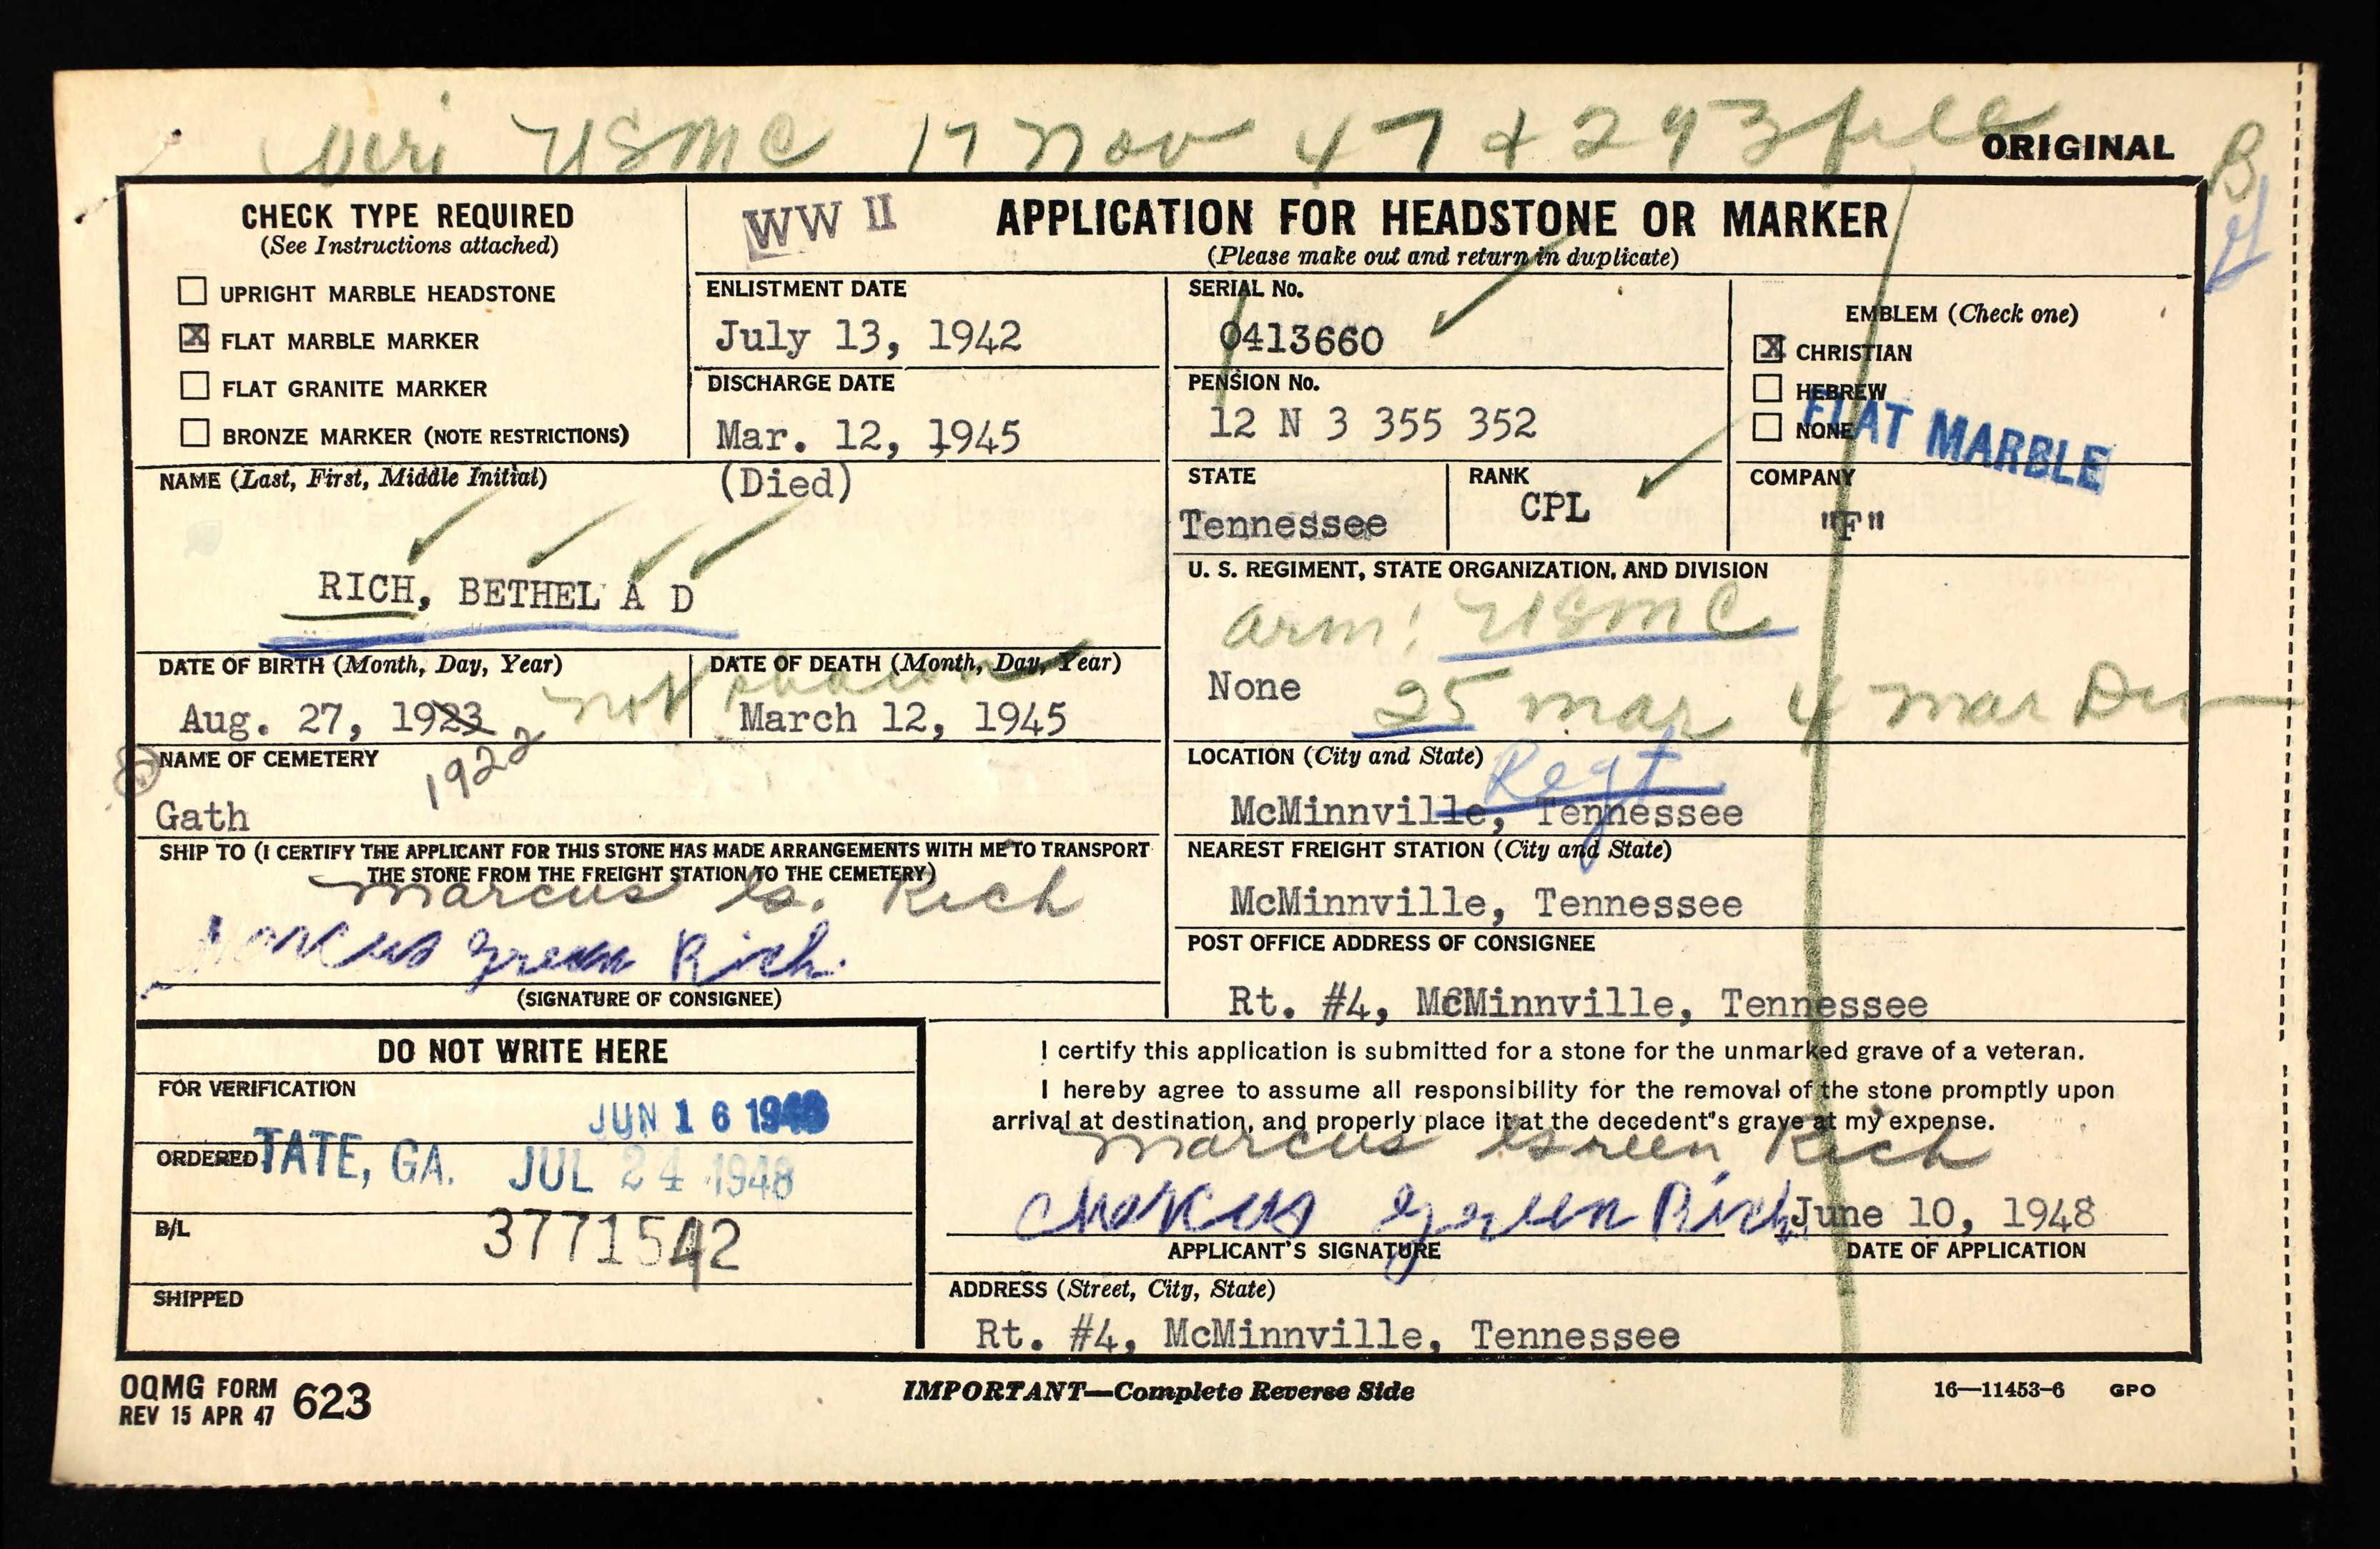 Veri USMC 17 Nov 47 & 293 file
ORIGINAL
B
CHECK TYPE REQUIRED
(See Instructions attached)
UPRIGHT MARBLE HEADSTONE
X FLAT MARBLE MARKER
FLAT GRANITE MARKER
BRONZE MARKER (NOTE RESTRICTIONS)
WW II
APPLICATION FOR HEADSTONE OR MARKER
(Please make out and return in duplicate)
ENLISTMENT DATE
July 13, 1942
DISCHARGE DATE
Mar. 12, 1945
(Died)
SERIAL No.
0413660
PENSION No.
12 N 3 355 352
EMBLEM (Check one)
X CHRISTIAN
HEBREW
NONE
FLAT MARBLE
NAME (Last, First, Middle Initial)
RICH, BETHEL A D
STATE
Tennessee
RANK
CPL
COMPANY
"F"
U. S. REGIMENT, STATE ORGANIZATION, AND DIVISION
arm: USMC
None 25 Mar 4 Mar Div
Regt
DATE OF BIRTH (Month, Day, Year)
Aug. 27, 1923
1922
DATE OF DEATH (Month, Day, Year)
not shown
March 12, 1945
NAME OF CEMETERY
Gath
LOCATION (City and State)
McMinnville, Tennessee
SHIP TO (I CERTIFY THE APPLICANT FOR THIS STONE HAS MADE ARRANGEMENTS WITH ME TO TRANSPORT
THE STONE FROM THE FREIGHT STATION TO THE CEMETERY)
Marcus G. Rich
Marcus Green Rich.
(SIGNATURE OF CONSIGNEE)
NEAREST FREIGHT STATION (City and State)
McMinnville, Tennessee
POST OFFICE ADDRESS OF CONSIGNEE
Rt. #4, McMinnville, Tennessee
DO NOT WRITE HERE
FOR VERIFICATION
JUN 16 1948
ORDERED TATE, GA. JUL 24 1948
B/L
3771542
SHIPPED
I certify this application is submitted for a stone for the unmarked grave of a veteran.
I hereby agree to assume all responsibility for the removal of the stone promptly upon
arrival at destination, and properly place it at the decedent"s grave at my expense.
Marcus Green Rich
Marcus Green Rich June 10, 1948
APPLICANT'S SIGNATURE
DATE OF APPLICATION
ADDRESS (Street, City, State)
Rt. #4, McMinnville, Tennessee
OQMG FORM 623
REV 15 APR 47
IMPORTANT—Complete Reverse Side
16—11453-6 GPO